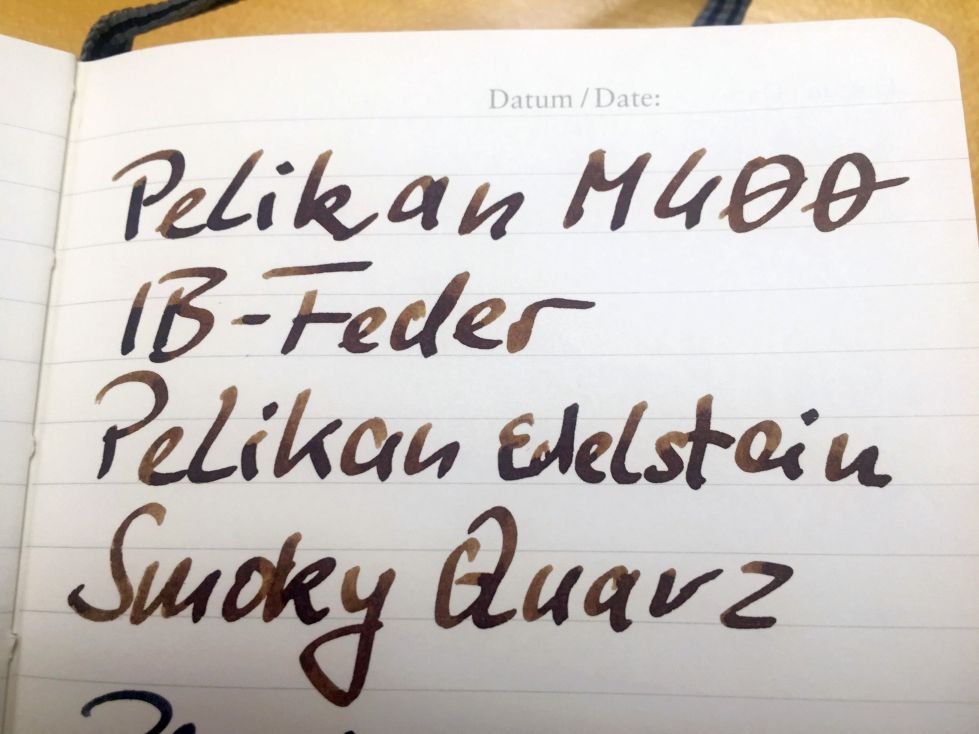 Datum / Date:
Pelikan M400
IB-Feder
Pelikan Edelstein
Smoky Quarz